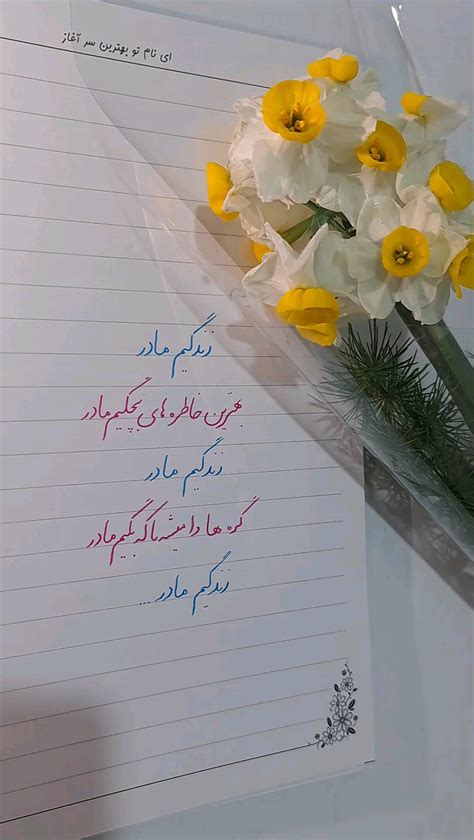 ای نام تو بهترین سر آغاز
زندگیم مادر
بهترین خاطره های بچگیم مادر
زندگیم مادر
گره ها وا میشه با یه بگیم مادر
زندگیم مادر ...